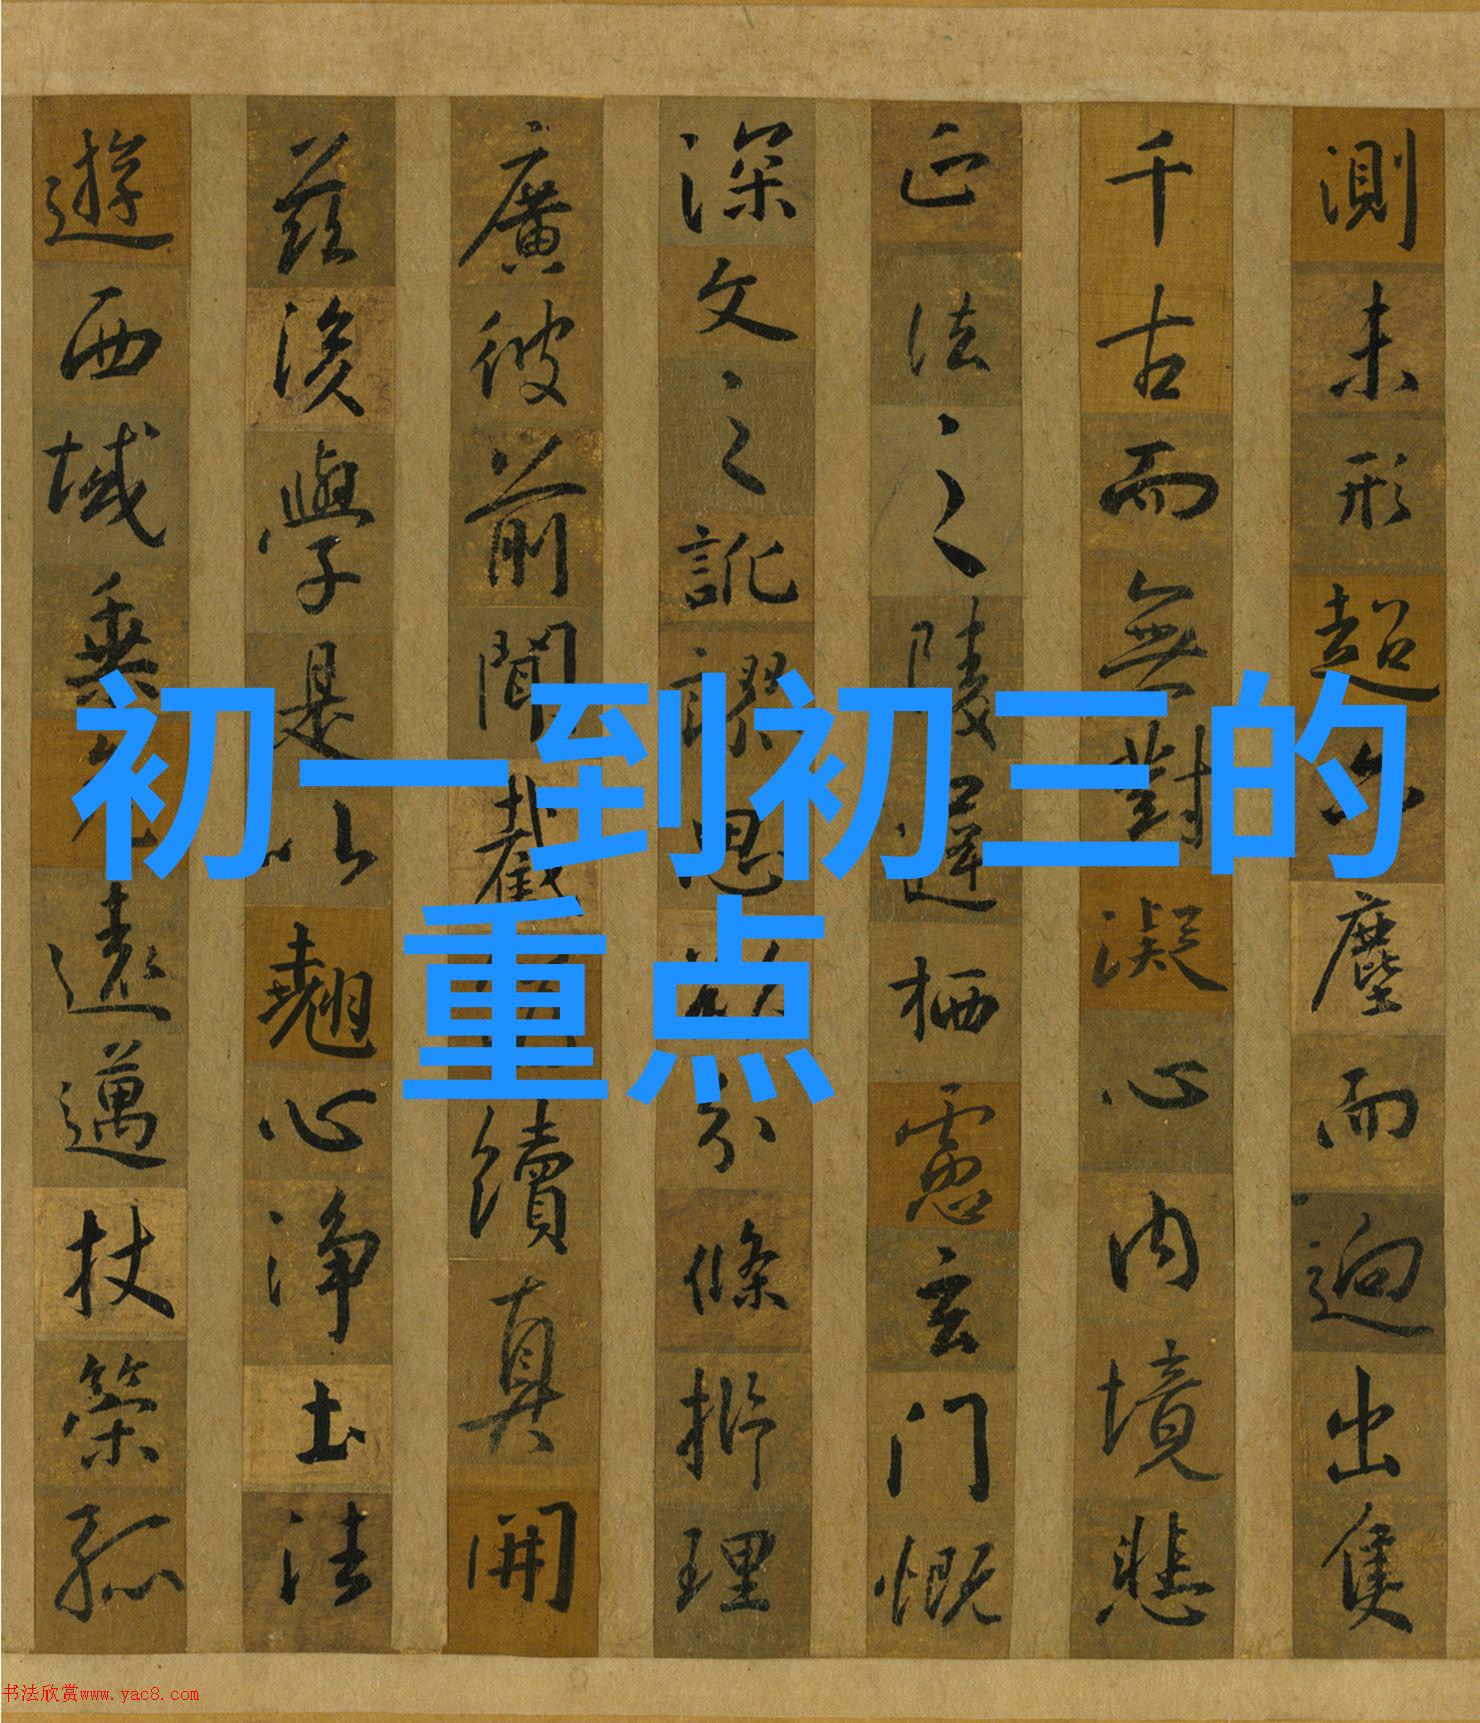 測未形超六塵而迥出隻
千古而無對凝心内境悲
正法之陵遲栖慮玄門慨
深文之訛謬思欲分條析理
廣彼前聞截續真開
茲後學是以翹心淨土法
遊西域乘危遠邁杖策孤
初一到初三的
重点
书法欣赏www.yac8.com